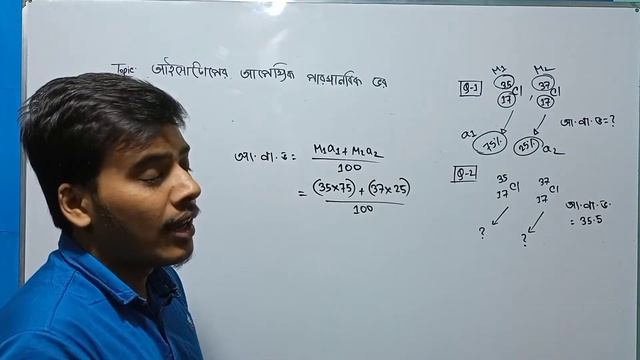 Topic: আইসোটোপের আপেক্ষিক পারমানবিক ভর
আ.পা.ভ = M₁a₁ + M₂a₂ / 100
= (35×75) + (37×25) / 100
Q-1
M1 M2
35 37
Cl , Cl
17 17
a1 75% 25% a2
আ.পা.ভ = ?
Q-2
35 37
Cl Cl
17 17
? ?
আ.পা.ভ.
= 35.5